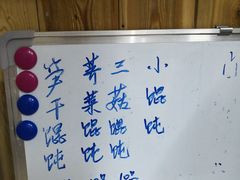 笋干馄饨
荠菜馄饨
三菇馄饨
小馄饨